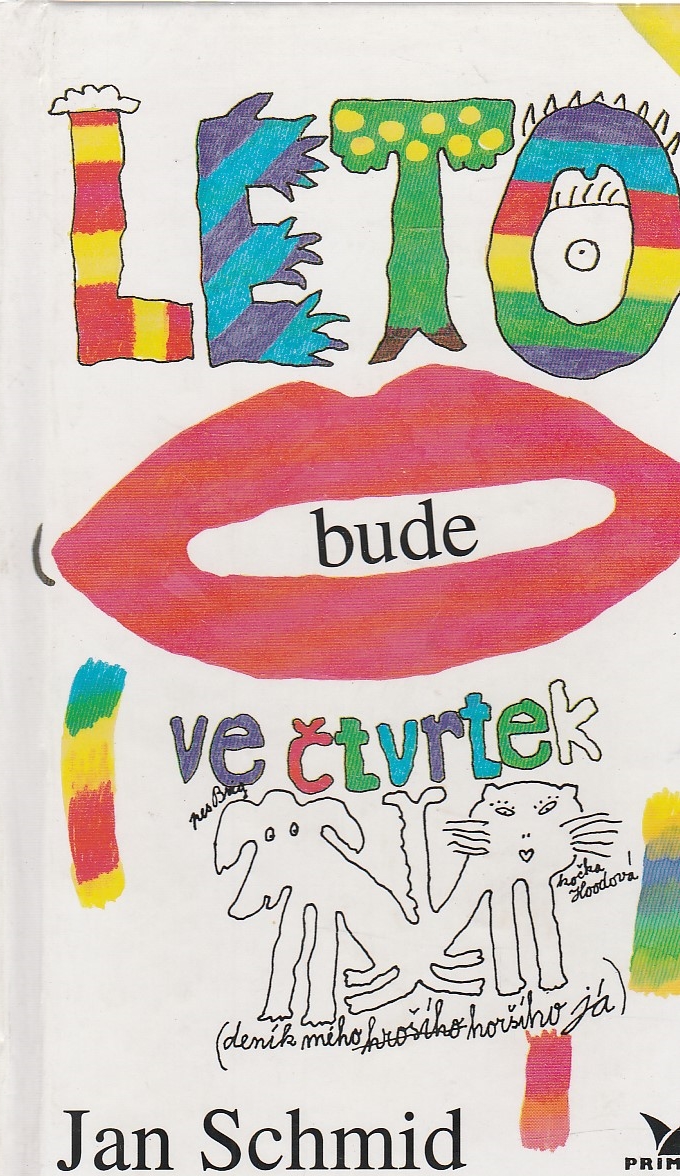 LETO
bude
ve čtvrtek
pes Bray
kočka
Hoodová
(deník mého hrošího horšího já)
Jan Schmid
PRIM